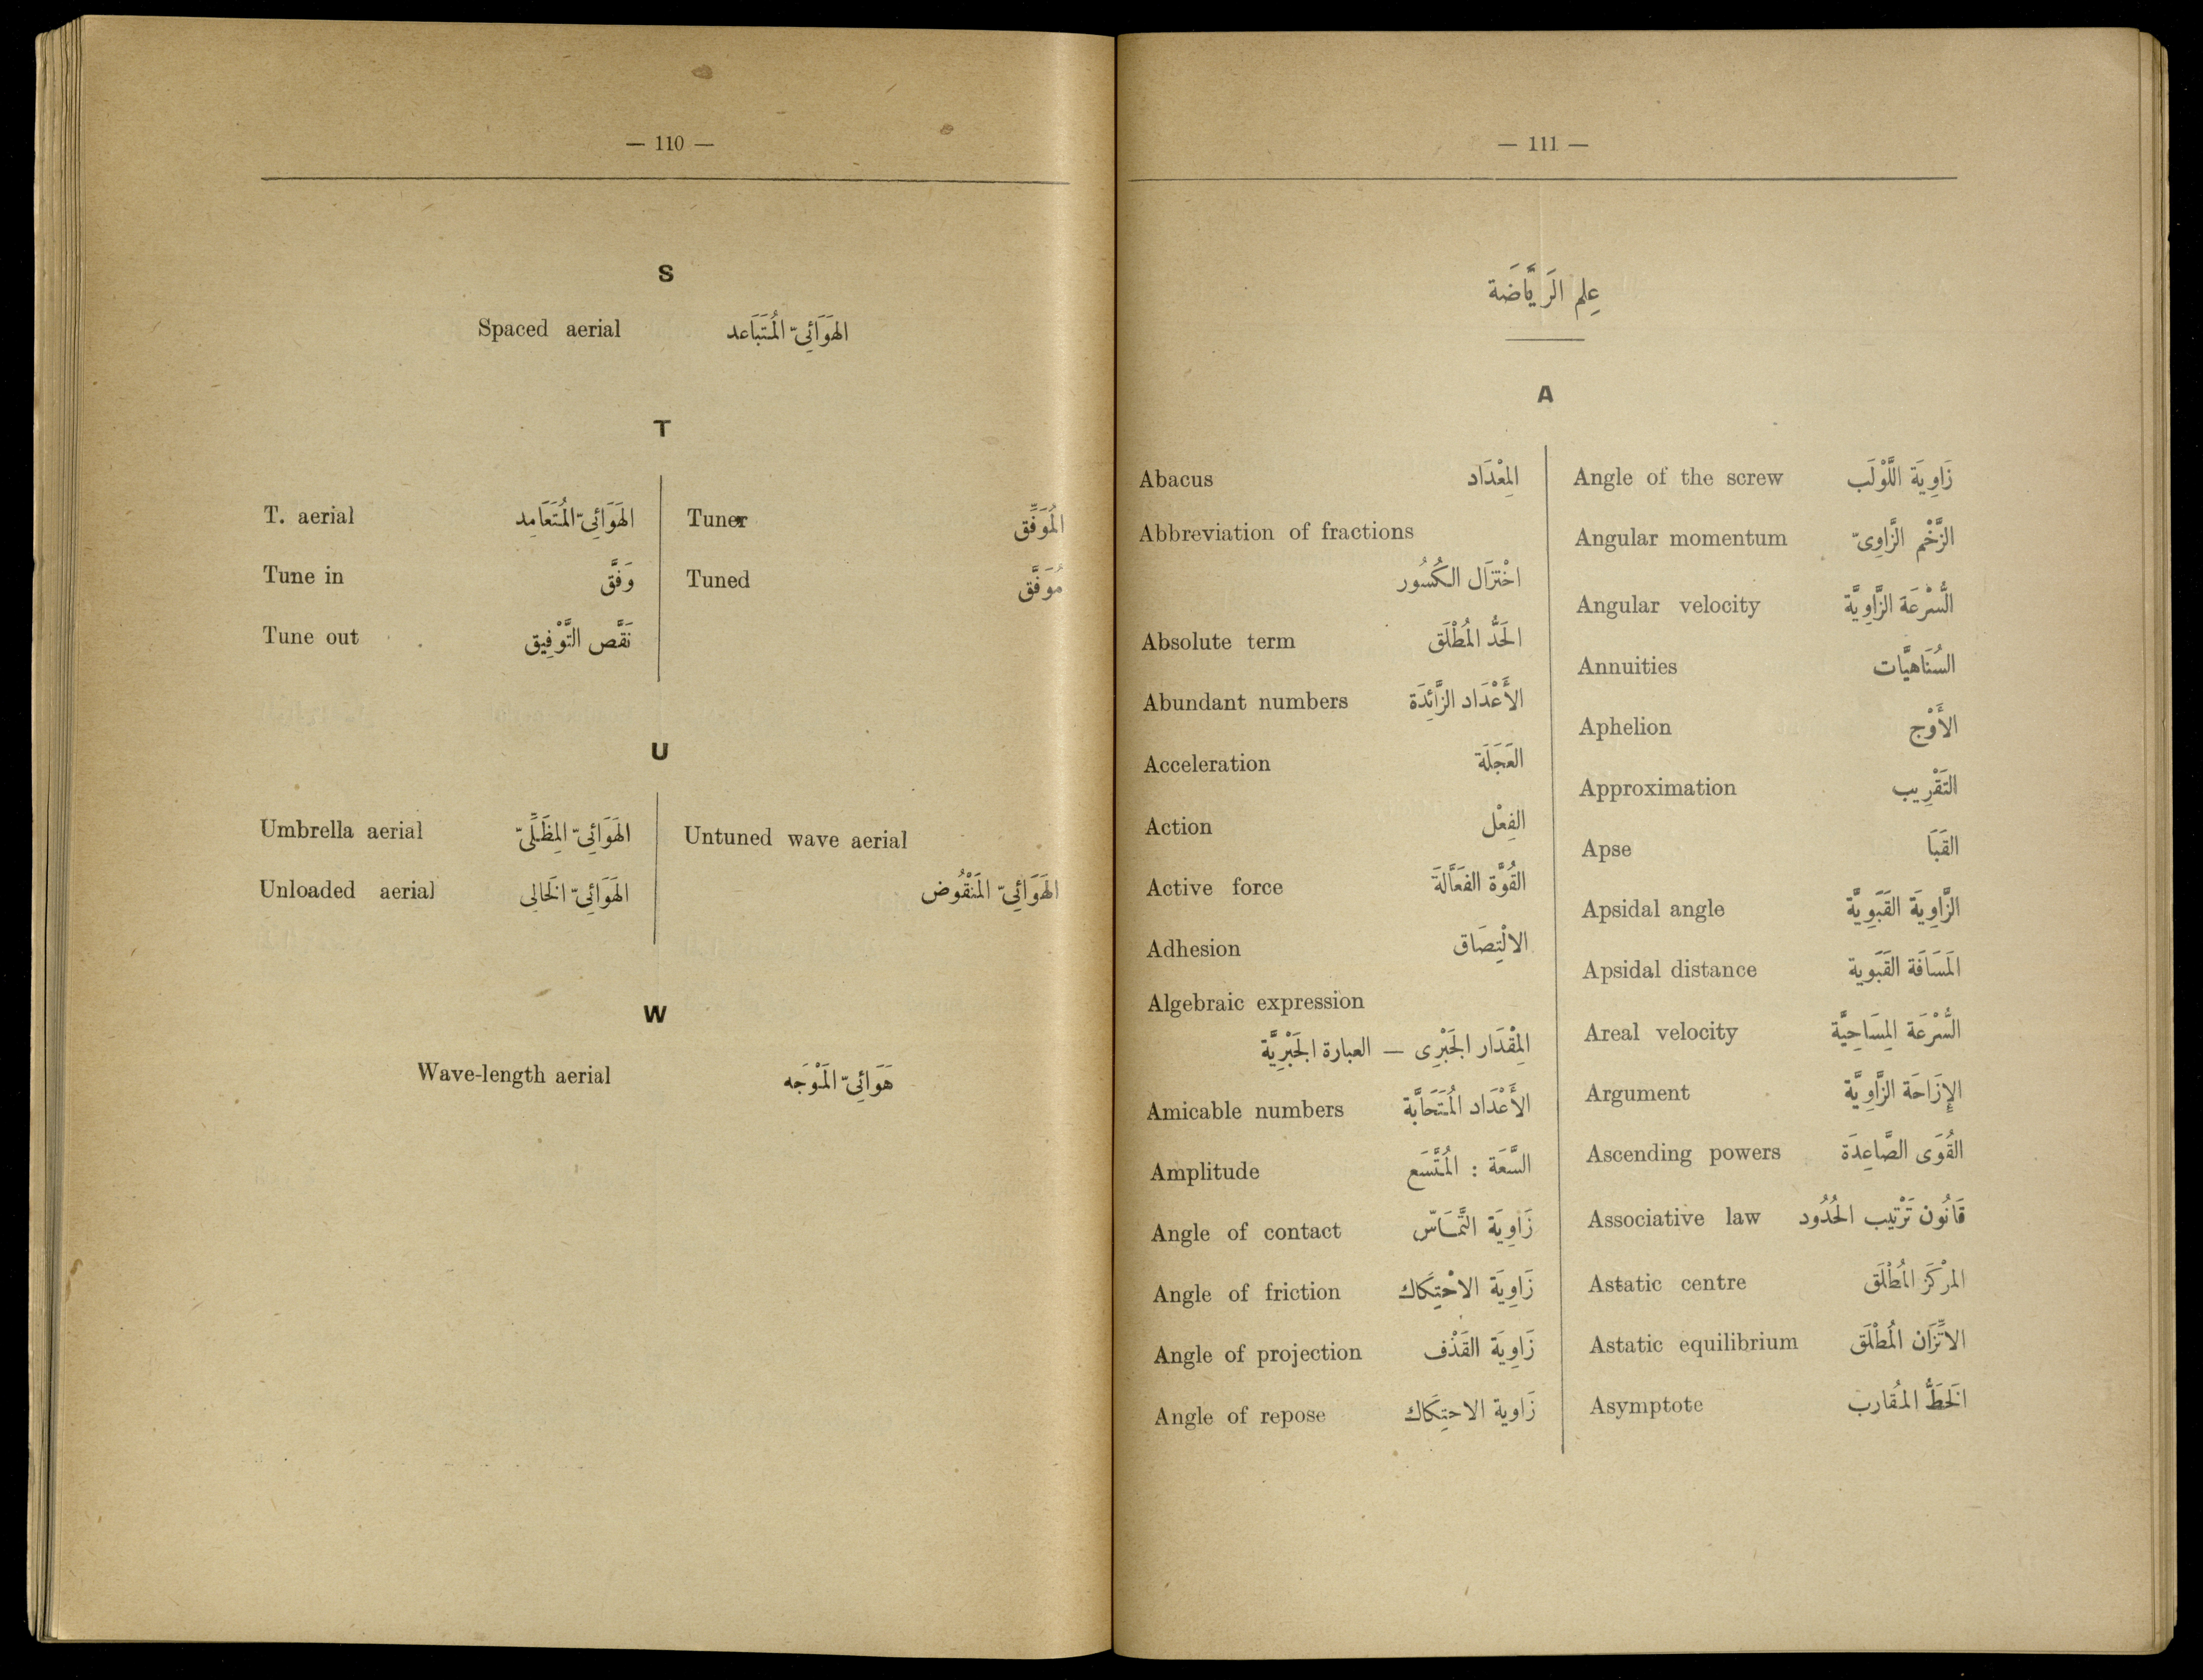 — 110 —
S
Spaced aerial الهَوَائِىّ المُتَبَاعد
T
T. aerial الهَوَائِىّ المُتَعَامِد
Tune in وَفَّق
Tune out نَقَّص التَّوْفِيق
Tuner المُوَفِّق
Tuned مُوَفَّق
U
Umbrella aerial الهَوَائِىّ المِظَلِّىّ
Unloaded aerial الهَوَائِىّ الخَالِى
Untuned wave aerial
الهَوَائِىّ المَنْقُوض
W
Wave-length aerial هَوَائِىّ المَوْجَه
— 111 —
عِلم الرَيَّاضَة
A
Abacus المِعْدَاد
Abbreviation of fractions
اخْتزَال الكُسُور
Absolute term الحَدُّ المُطْلَق
Abundant numbers الأَعْدَاد الزَّائِدَة
Acceleration العَجَلَة
Action الفِعْل
Active force القُوَّة الفَعَّالَة
Adhesion الالْتِصَاق
Algebraic expression
المِقْدَار الجَبْرِى — العبارة الجَبْرِيَّة
Amicable numbers الأَعْدَاد المُتَحَابَّة
Amplitude السَّعَة : المُتَّسَع
Angle of contact زَاوِيَة التَّمَاسّ
Angle of friction زَاوِيَة الاحْتِكَاك
Angle of projection زَاوِيَة القَذْف
Angle of repose زَاوية الاحتِكَاك
Angle of the screw زَاوِيَة اللَّوْلَب
Angular momentum الزَّخْم الزَّاوِىّ
Angular velocity السُّرْعَة الزَّاوِيَّة
Annuities السُنَاهيَّات
Aphelion الأَوْج
Approximation التَقْرِيب
Apse القَبَا
Apsidal angle الزَّاوِيَة القَبَوِيَّة
Apsidal distance المَسَافَة القَبَوية
Areal velocity السُّرْعَة المِسَاحِيَّة
Argument الإِزَاحَة الزَّاوِيَّة
Ascending powers القُوَى الصَّاعِدَة
Associative law قَانُون تَرْتِيب الحُدُود
Astatic centre المرْكَز المُطْلَق
Astatic equilibrium الاتِّزَان المُطْلَق
Asymptote الخَطُّ المُقارب